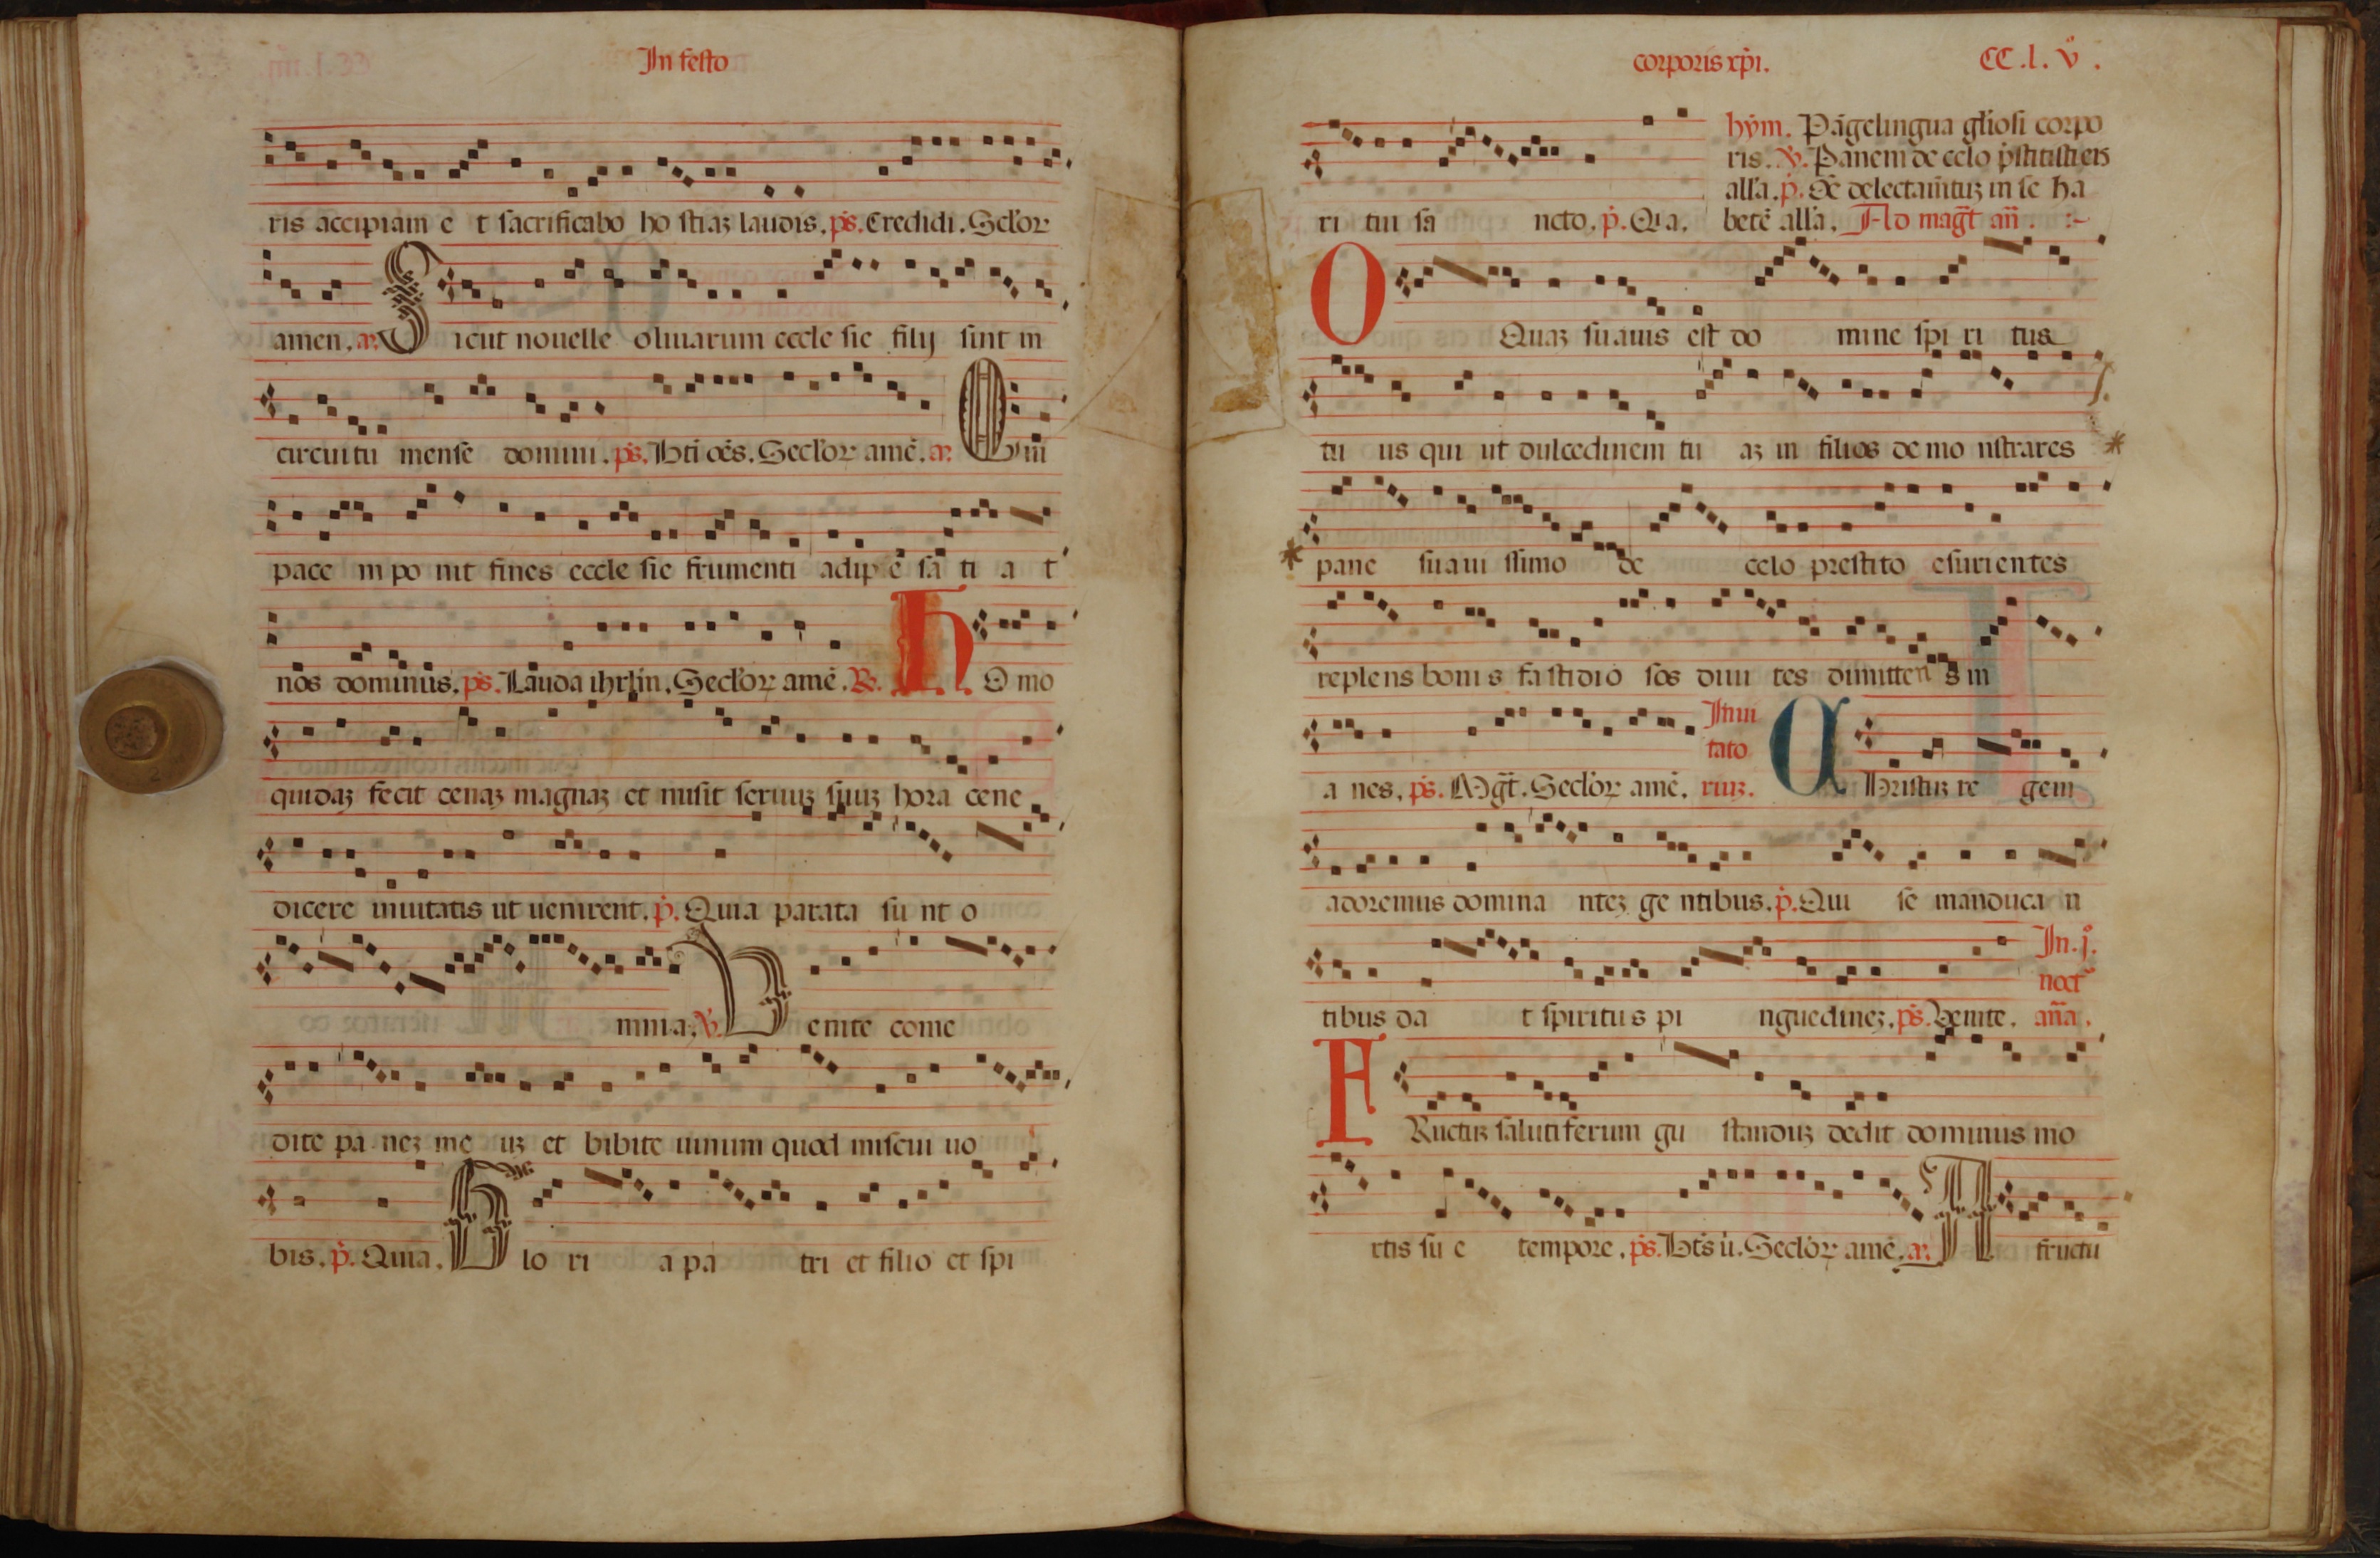 In festo
ris accipiam e t sacrificabo ho stiaʒ laudis. ps̄. Credidi. Sc̄lor
amen. a. S icut nouelle oliuarum eccle sie filij sint in
circuitu mense domini. ps̄. Bt̄i oēs. Seclor amē. a. Qui
pace m po nit fines eccle sie frumenti adip ē sa ti a t
nos dominus. ps̄. Lauda ihrlm. Seclor amē. R. h O mo
quidaʒ fecit cenaʒ magnaʒ et misit seruuʒ suuʒ hora cene
dicere inuitatis ut uenirent. p̄. Quia parata su nt o
mnia. v. V enite come
dite pa neʒ me uʒ et bibite uinum quod miscui uo
bis. p̄. Quia. G lo ri a pa tri et filio et spi
corporis xp̄i. CC. l. v.
hym. Pāge lingua gl̄iosi corpo
ris. v. Panem de celo p̄stitisti eis
all'a. p̄. Oē delectam̄tuʒ in se ha
ri tui sā ncto. p̄. Quia. betē all'a. Ad maḡt an̄.
O Quaʒ suauis est do mine spi ri tus
tu us qui ut dulcedinem tu aʒ in filios de mo nstrares
pane suaui ssimo de celo prestito esurientes
replens boni s fa stidio sos diui tes dimitten s in
a nes. ps̄. Mḡt. Seclor amē. Inui tato riuʒ. C hristuʒ re gem
adoremus domina nteʒ ge ntibus. p̄. Qui se manduca n
tibus da t spiritus pi nguedineʒ. ps̄. Venite. In. j. noct̄ an̄a.
F Ructuʒ salutiferum gu standuʒ dedit dominus mo
rtis su e tempore. ps̄. Bt̄s ū. Seclor amē. a. A fructu